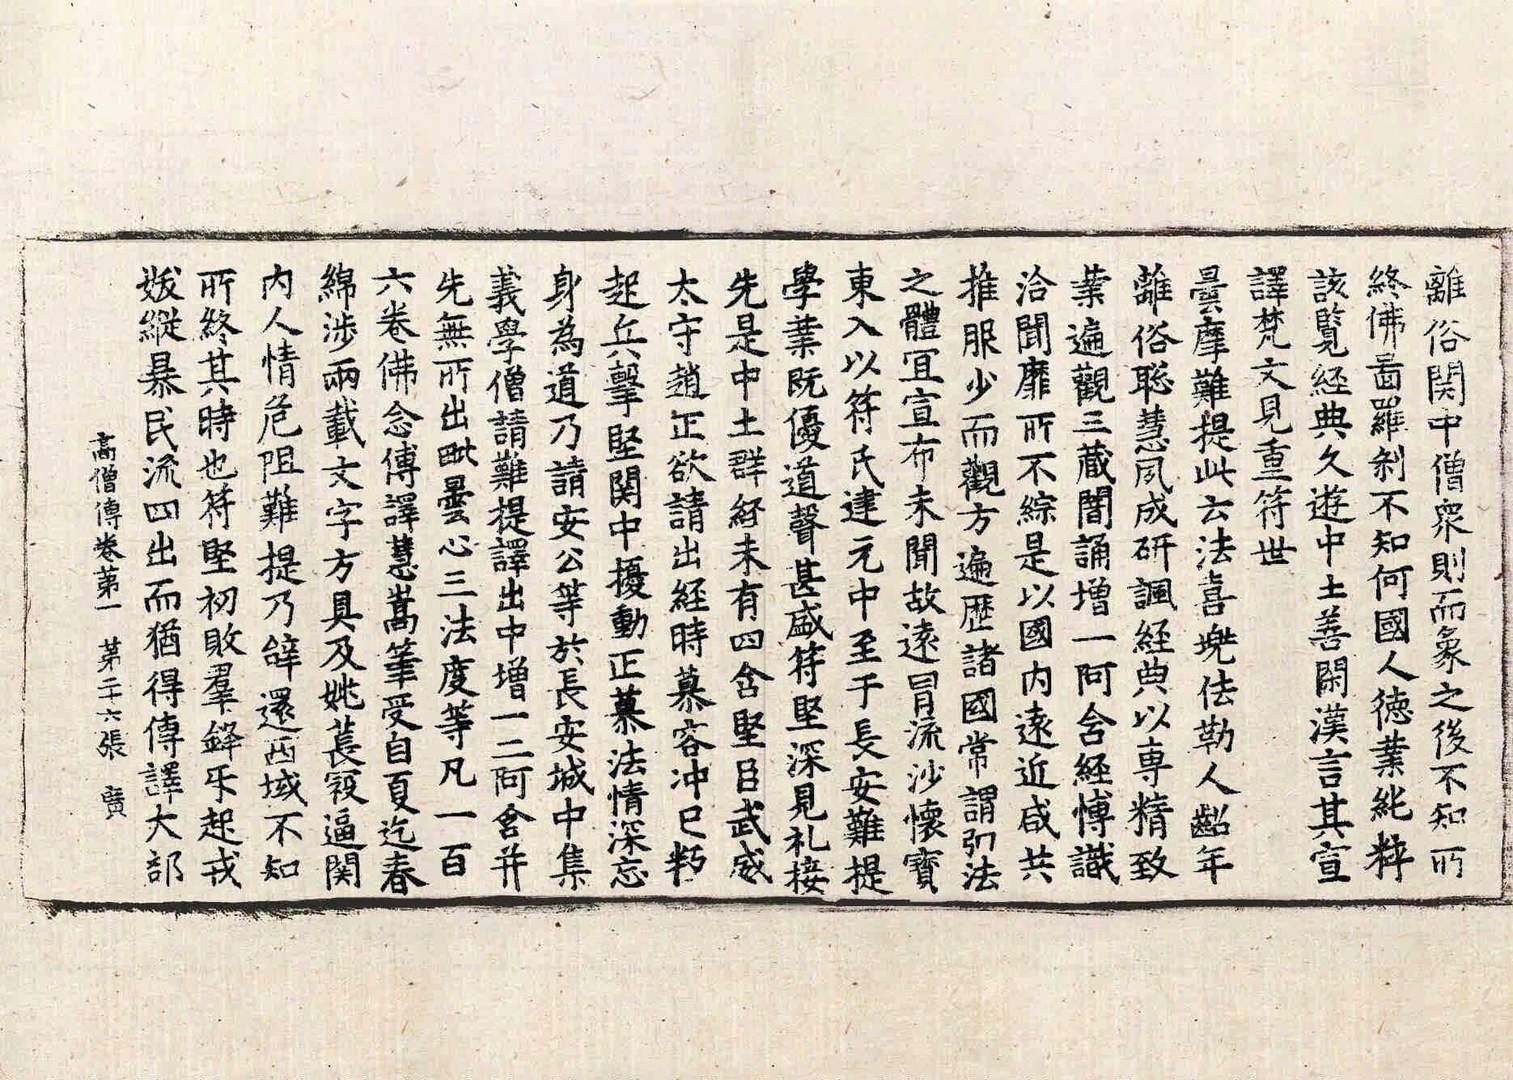 離俗関中僧衆則而象之後不知所
終佛啚羅刹不知何國人徳業純粹
該覽経典久遊中土善閑漢言其宣
譯梵文見重符世
曇摩難提此云法喜兠佉勒人齠年
離俗聡慧夙成研諷経典以専精致
業遍觀三藏闇誦增一阿含経博識
洽聞靡所不綜是以國内遠近咸共
推服少而觀方遍歴諸國常謂弘法
之體冝宣布未聞故遠冐流沙懷寳
東入以符氏建元中至于長安難提
學業既優道聲甚盛符堅深見礼接
先是中土群経未有四含堅臣武威
太守趙正欲請出経時慕容冲已叛
起兵擊堅関中擾動正慕法情深忘
身為道乃請安公等於長安城中集
義學僧請難提譯出中增一二阿含并
先無所出毗曇心三法度等凡一百
六巻佛念傳譯慧嵩筆受自夏迄春
綿涉兩載文字方具及姚萇寇逼関
内人情危阻難提乃辭還西域不知
所終其時也符堅初敗羣鋒乐起戎
妭縱暴民流四出而猶得傳譯大部
高僧傳巻第一 第二十六張 賔